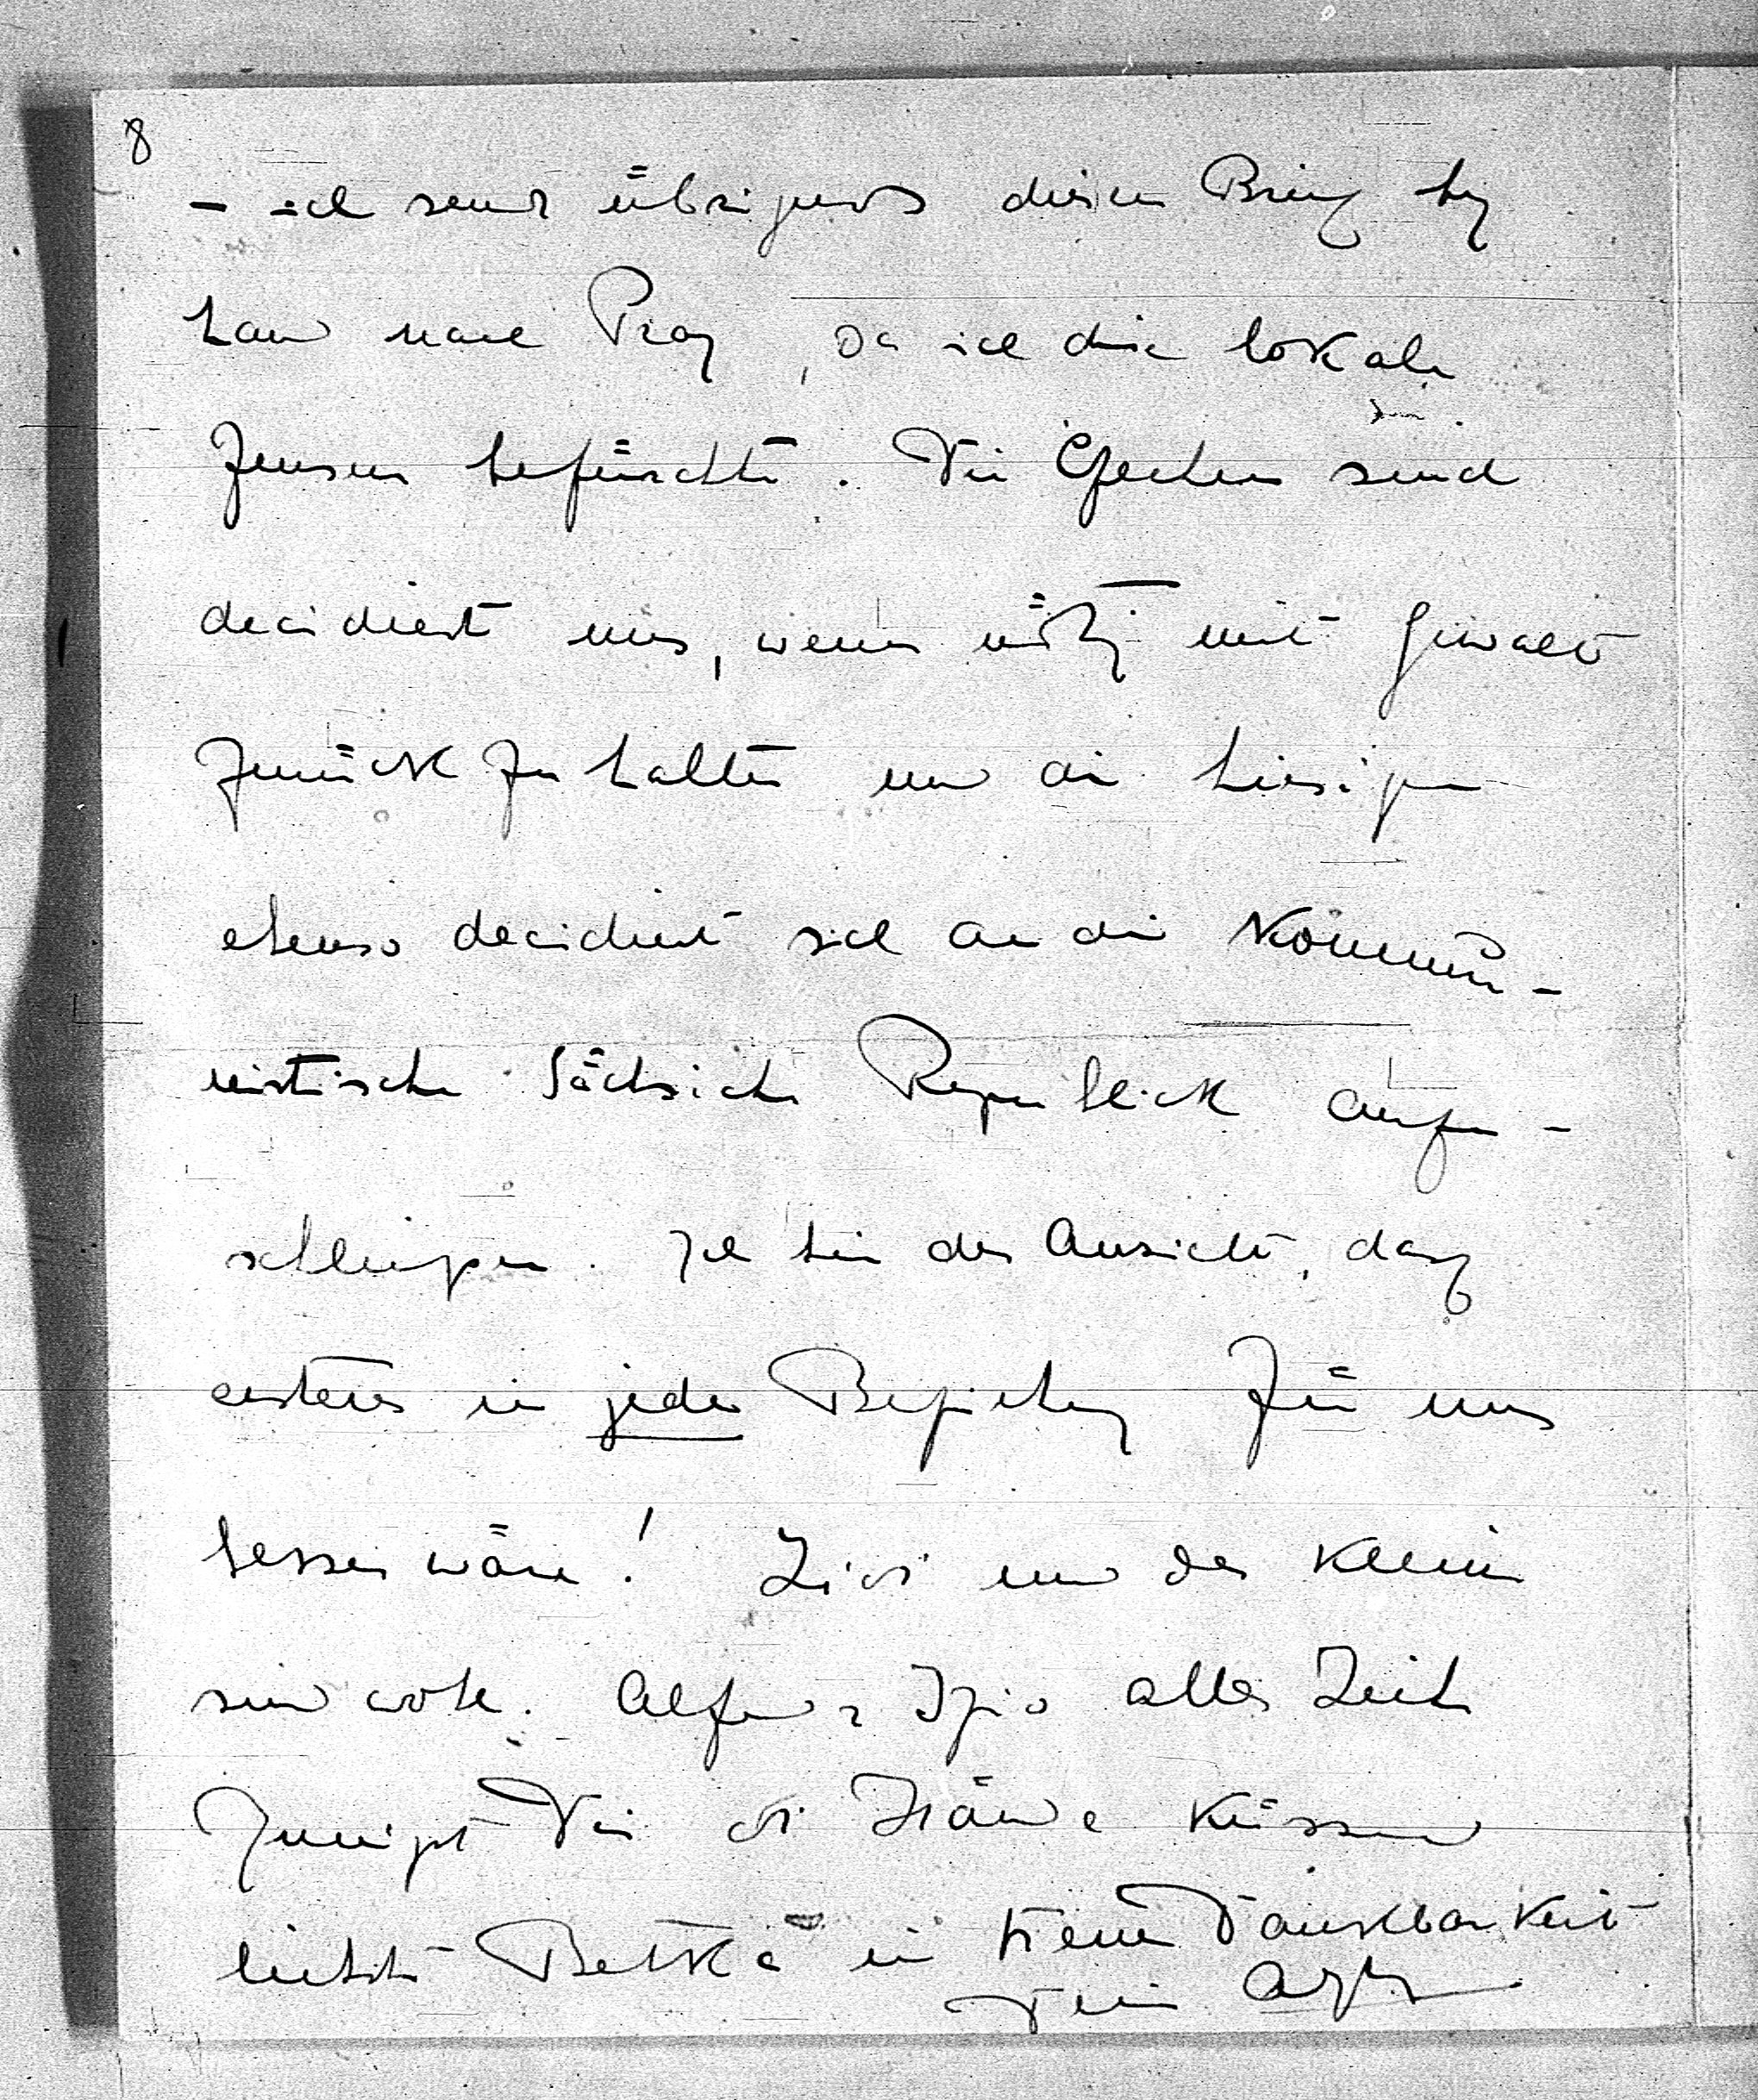 8
- ich sende übrigens diesen Brief by
hand nach Prag, da ich die lokale
Zensur befürchte. Die Čechen sind
decidiert uns, wenn nötig mit Gewalt
zurück zu halten und die hiesigen
ebenso decidiert sich an die Kommu-
nistische Sächsische Republick anzu-
schliessen. Ich bin der Ansicht, dass
ersteres in jeder Beziehung für uns
besser wäre! und der Kleine
sind wohl. alles Liebe
Dir die Hände küssend
liebste in treuer Dankbarkeit
Dein